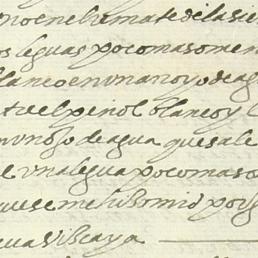 no en el rremate de la sie
os leguas poco mas o men
blanco en vn arroyo de ag
te el peñol blanco y
n vn ojo de agua que sale
e vna legua poco mas o
que se me rremitio por
eua Viscaya